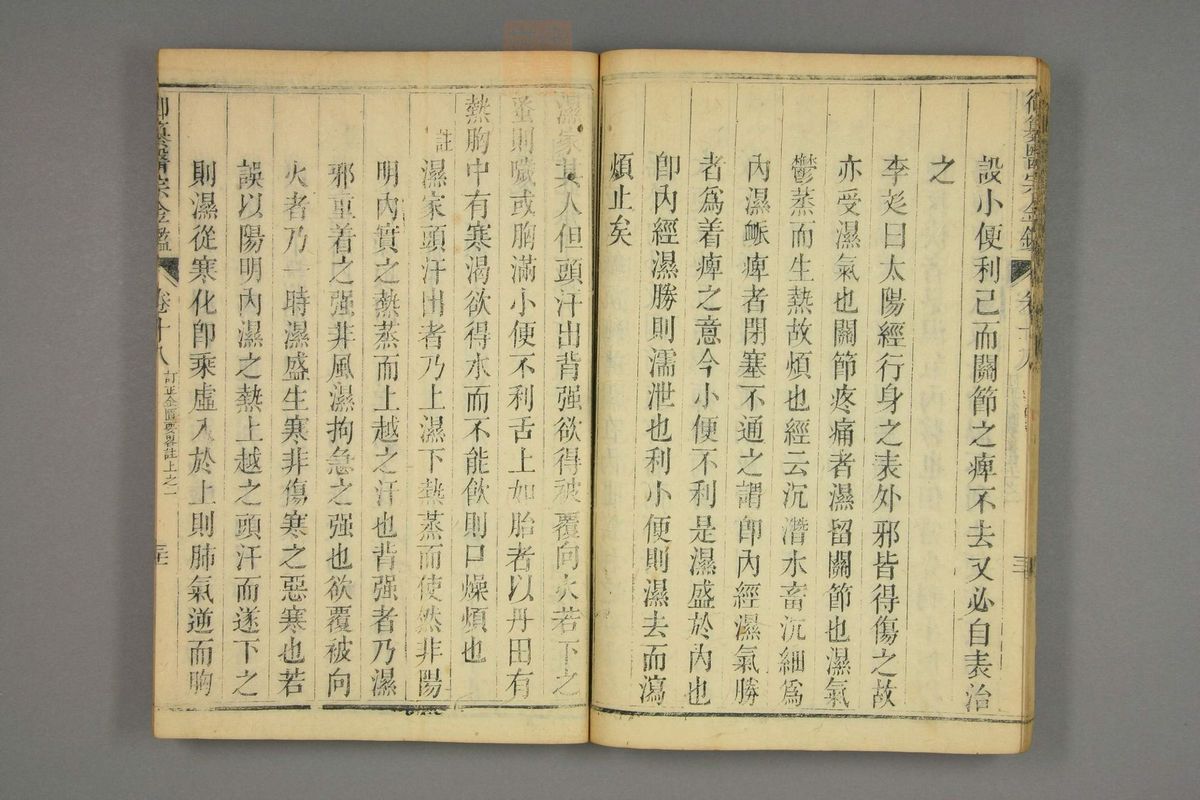 御纂醫宗金鑑
卷十八
設小便利已而關節之痺不去又必自表治
之
李彣曰太陽經行身之表外邪皆得傷之故
亦受濕氣也關節疼痛者濕留關節也濕氣
鬱蒸而生熱故煩也經云沉潛水畜沉細爲
內濕脈痺者閉塞不通之謂卽內經濕氣勝
者爲着痺之意今小便不利是濕盛於內也
卽內經濕勝則濡泄也利小便則濕去而瀉
煩止矣
濕家其人但頭汗出背强欲得被覆向火若下之
蚤則噦或胸滿小便不利舌上如胎者以丹田有
熱胸中有寒渴欲得水而不能飲則口燥煩也
註
濕家頭汗出者乃上濕下熱蒸而使然非陽
明內實之熱蒸而上越之汗也背强者乃濕
邪重着之强非風濕拘急之强也欲覆被向
火者乃一時濕盛生寒非傷寒之惡寒也若
誤以陽明內濕之熱上越之頭汗而遂下之
則濕從寒化卽乘虛入於上則肺氣逆而胸
御纂醫宗金鑑
卷十八
訂正金匱要畧註上之一